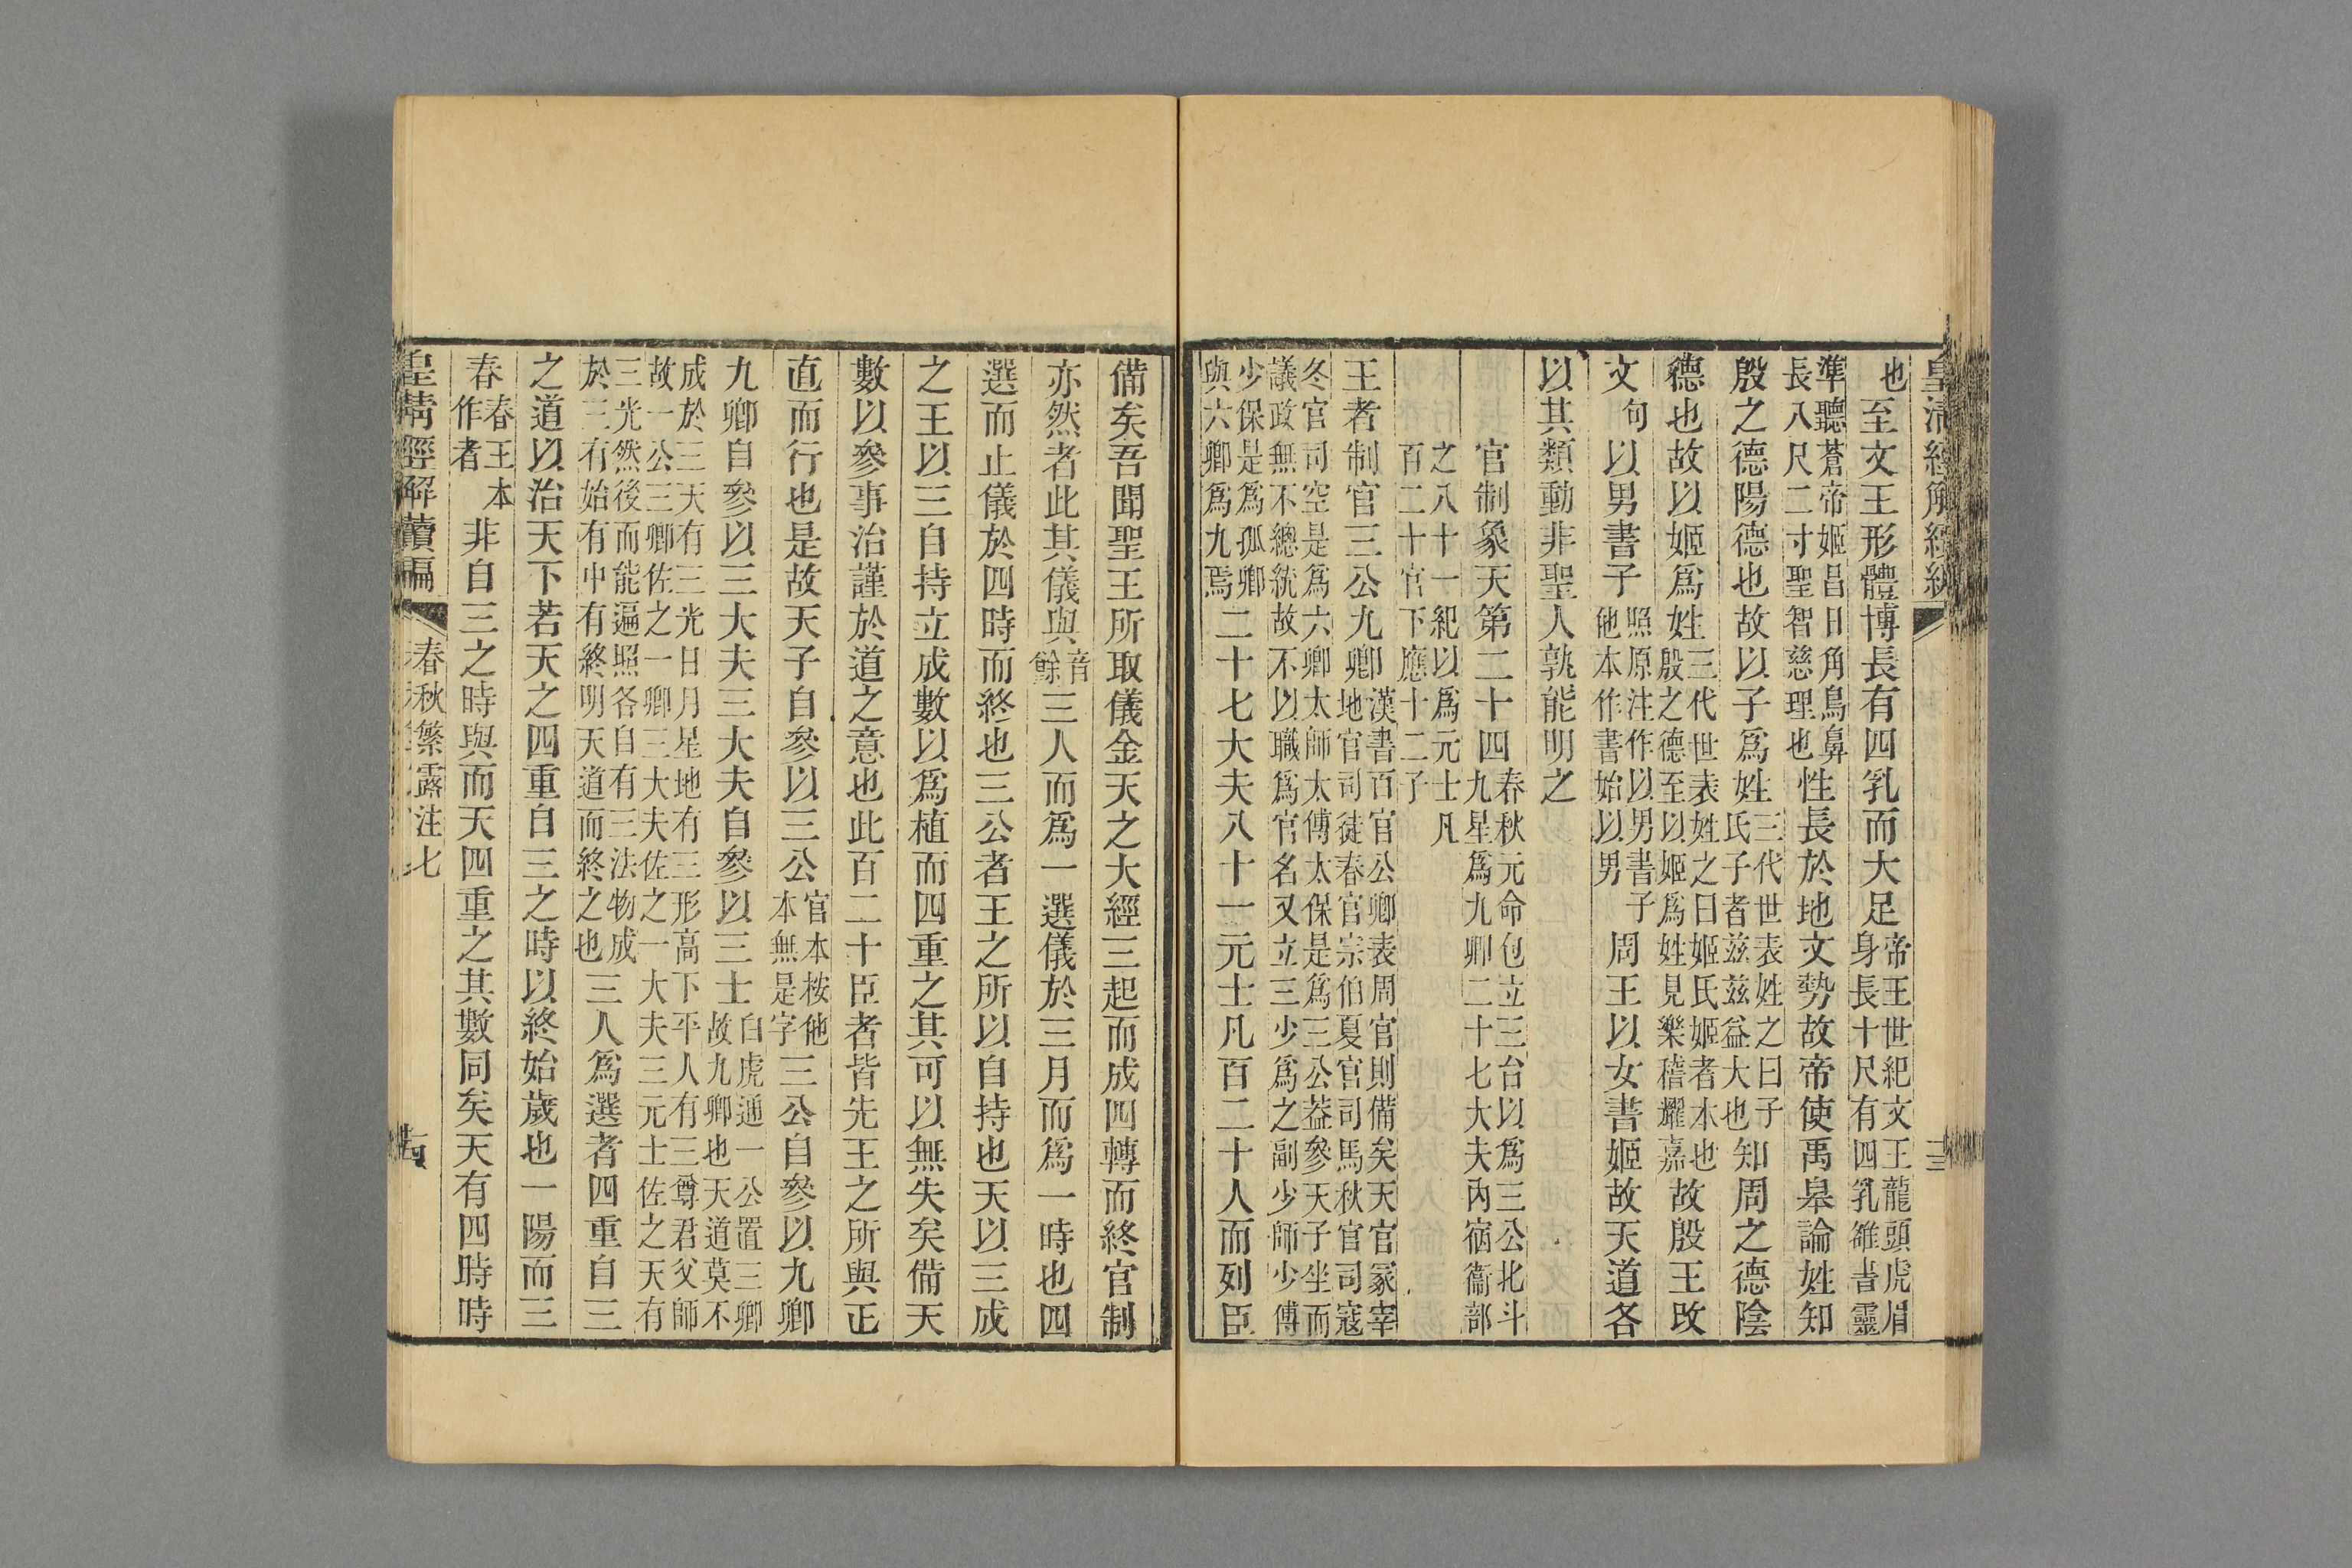 也至文王形體博長有四乳而大足帝王世紀文王龍頭虎眉身長十尺有四乳雒書靈
準聽蒼帝姬昌日角鳥鼻長八尺二寸聖智慈理也性長於地文勢故帝使禹皋論姓知
殷之德陽德也故以子爲姓三代世表姓之曰子氏子者兹兹益大也知周之德陰
德也故以姬爲姓三代世表姓之曰姬氏姬者本也殷之德至以姬爲姓見樂稽耀嘉故殷王改
文句以男書子照原注作以男書子他本作書始以男周王以女書姬故天道各
以其類動非聖人孰能明之
官制象天第二十四春秋元命包立三台以爲三公北斗九星爲九卿二十七大夫內宿衞部
之八十一紀以爲元士凡百二十官下應十二子
王者制官三公九卿漢書百官公卿表周官則備矣天官冢宰地官司徒春官宗伯夏官司馬秋官司寇
冬官司空是爲六卿太師太傅太保是爲三公葢參天子坐而議政無不總統故不以職爲官名又立三少爲之副少師少傅
少保是爲孤卿與六卿爲九焉二十七大夫八十一元士凡百二十人而列臣
備矣吾聞聖王所取儀金天之大經三起而成四轉而終官制
亦然者此其儀與音餘三人而爲一選儀於三月而爲一時也四
選而止儀於四時而終也三公者王之所以自持也天以三成
之王以三自持立成數以爲植而四重之其可以無失矣備天
數以參事治謹於道之意也此百二十臣者皆先王之所與正
直而行也是故天子自參以三公官本桉他本無是字三公自參以九卿
九卿自參以三大夫三大夫自參以三士白虎通一公置三卿故九卿也天道莫不
成於三天有三光日月星地有三形高下平人有三尊君父師故一公三卿佐之一卿三大夫佐之一大夫三元士佐之天有
三光然後而能遍照各自有三法物成於三有始有中有終明天道而終之也三人爲選者四重自三
之道以治天下若天之四重自三之時以終始歲也一陽而三
春春王本作者非自三之時與而天四重之其數同矣天有四時時
皇清經解續編
春秋繁露注七